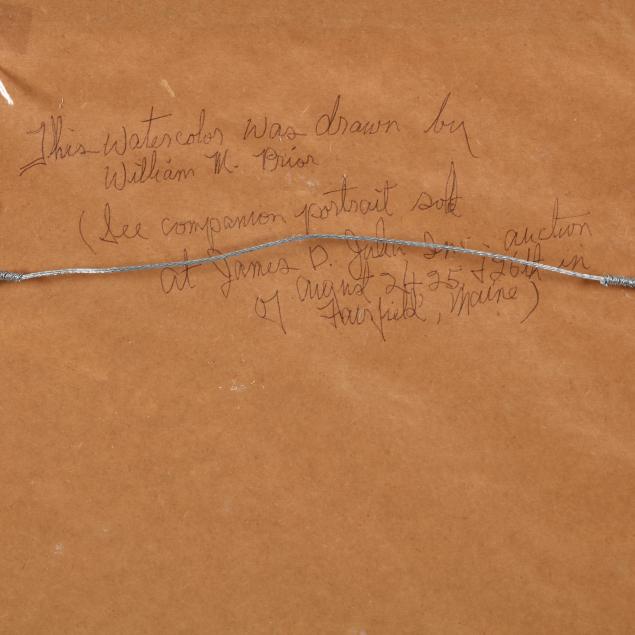 This watercolor was drawn by
William M. Prior
(See companion portrait sold
at James D. Julia Inc. auction
of August 24, 25, & 26th in
Fairfield, Maine)